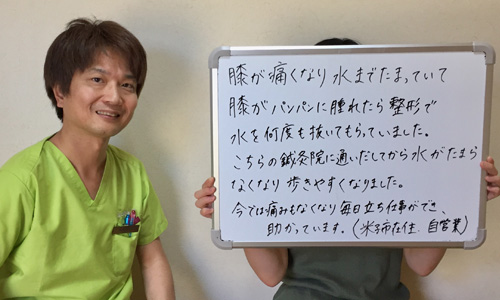 膝が痛くなり水までたまっていて
膝がパンパンに腫れたら整形で
水を何度も抜いてもらっていました。
こちらの鍼灸院に通いだしてから水がたまら
なくなり歩きやすくなりました。
今では痛みもなくなり毎日立ち仕事ができ、
助かっています。(米子市在住 自営業)